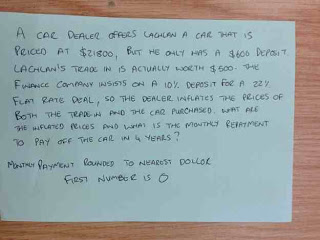 A CAR DEALER OFFERS LACHLAN A CAR THAT IS
PRICED AT $21800, BUT HE ONLY HAS A $600 DEPOSIT.
LACHLAN'S TRADE IN IS ACTUALLY WORTH $500. THE
FINANCE COMPANY INSISTS ON A 10% DEPOSIT FOR A 22%
FLAT RATE DEAL, SO THE DEALER INFLATES THE PRICES OF
BOTH THE TRADE-IN AND THE CAR PURCHASED. WHAT ARE
THE INFLATED PRICES AND WHAT IS THE MONTHLY REPAYMENT
TO PAY OFF THE CAR IN 4 YEARS?
MONTHLY PAYMENT ROUNDED TO NEAREST DOLLAR
FIRST NUMBER IS 0